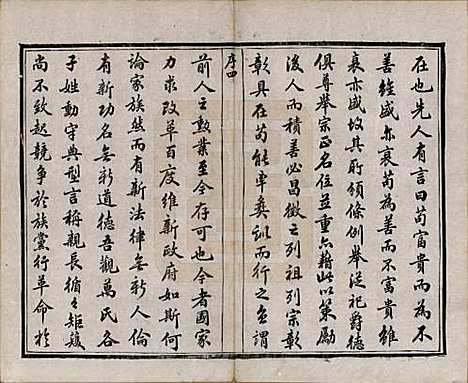 在也先人有言曰苟富貴而為不
善雖盛亦衰苟為善而不富貴雖
衰亦盛故其所頒條例舉從祀爵德
俱尊舉宗正名位並重亦藉此以策勵
後人而積善必昌徵之列祖列宗彰
彰具在苟能率彝訓而行之直謂
序四
前人之勳業至今存可也今者國家
力求改革百度維新政府如斯何
論家族然而有新法律無新人倫
有新功名無新道德吾觀萬氏各
子姓動守典型言稱親長循循矩矱
尚不致起競爭於族黨行革命於